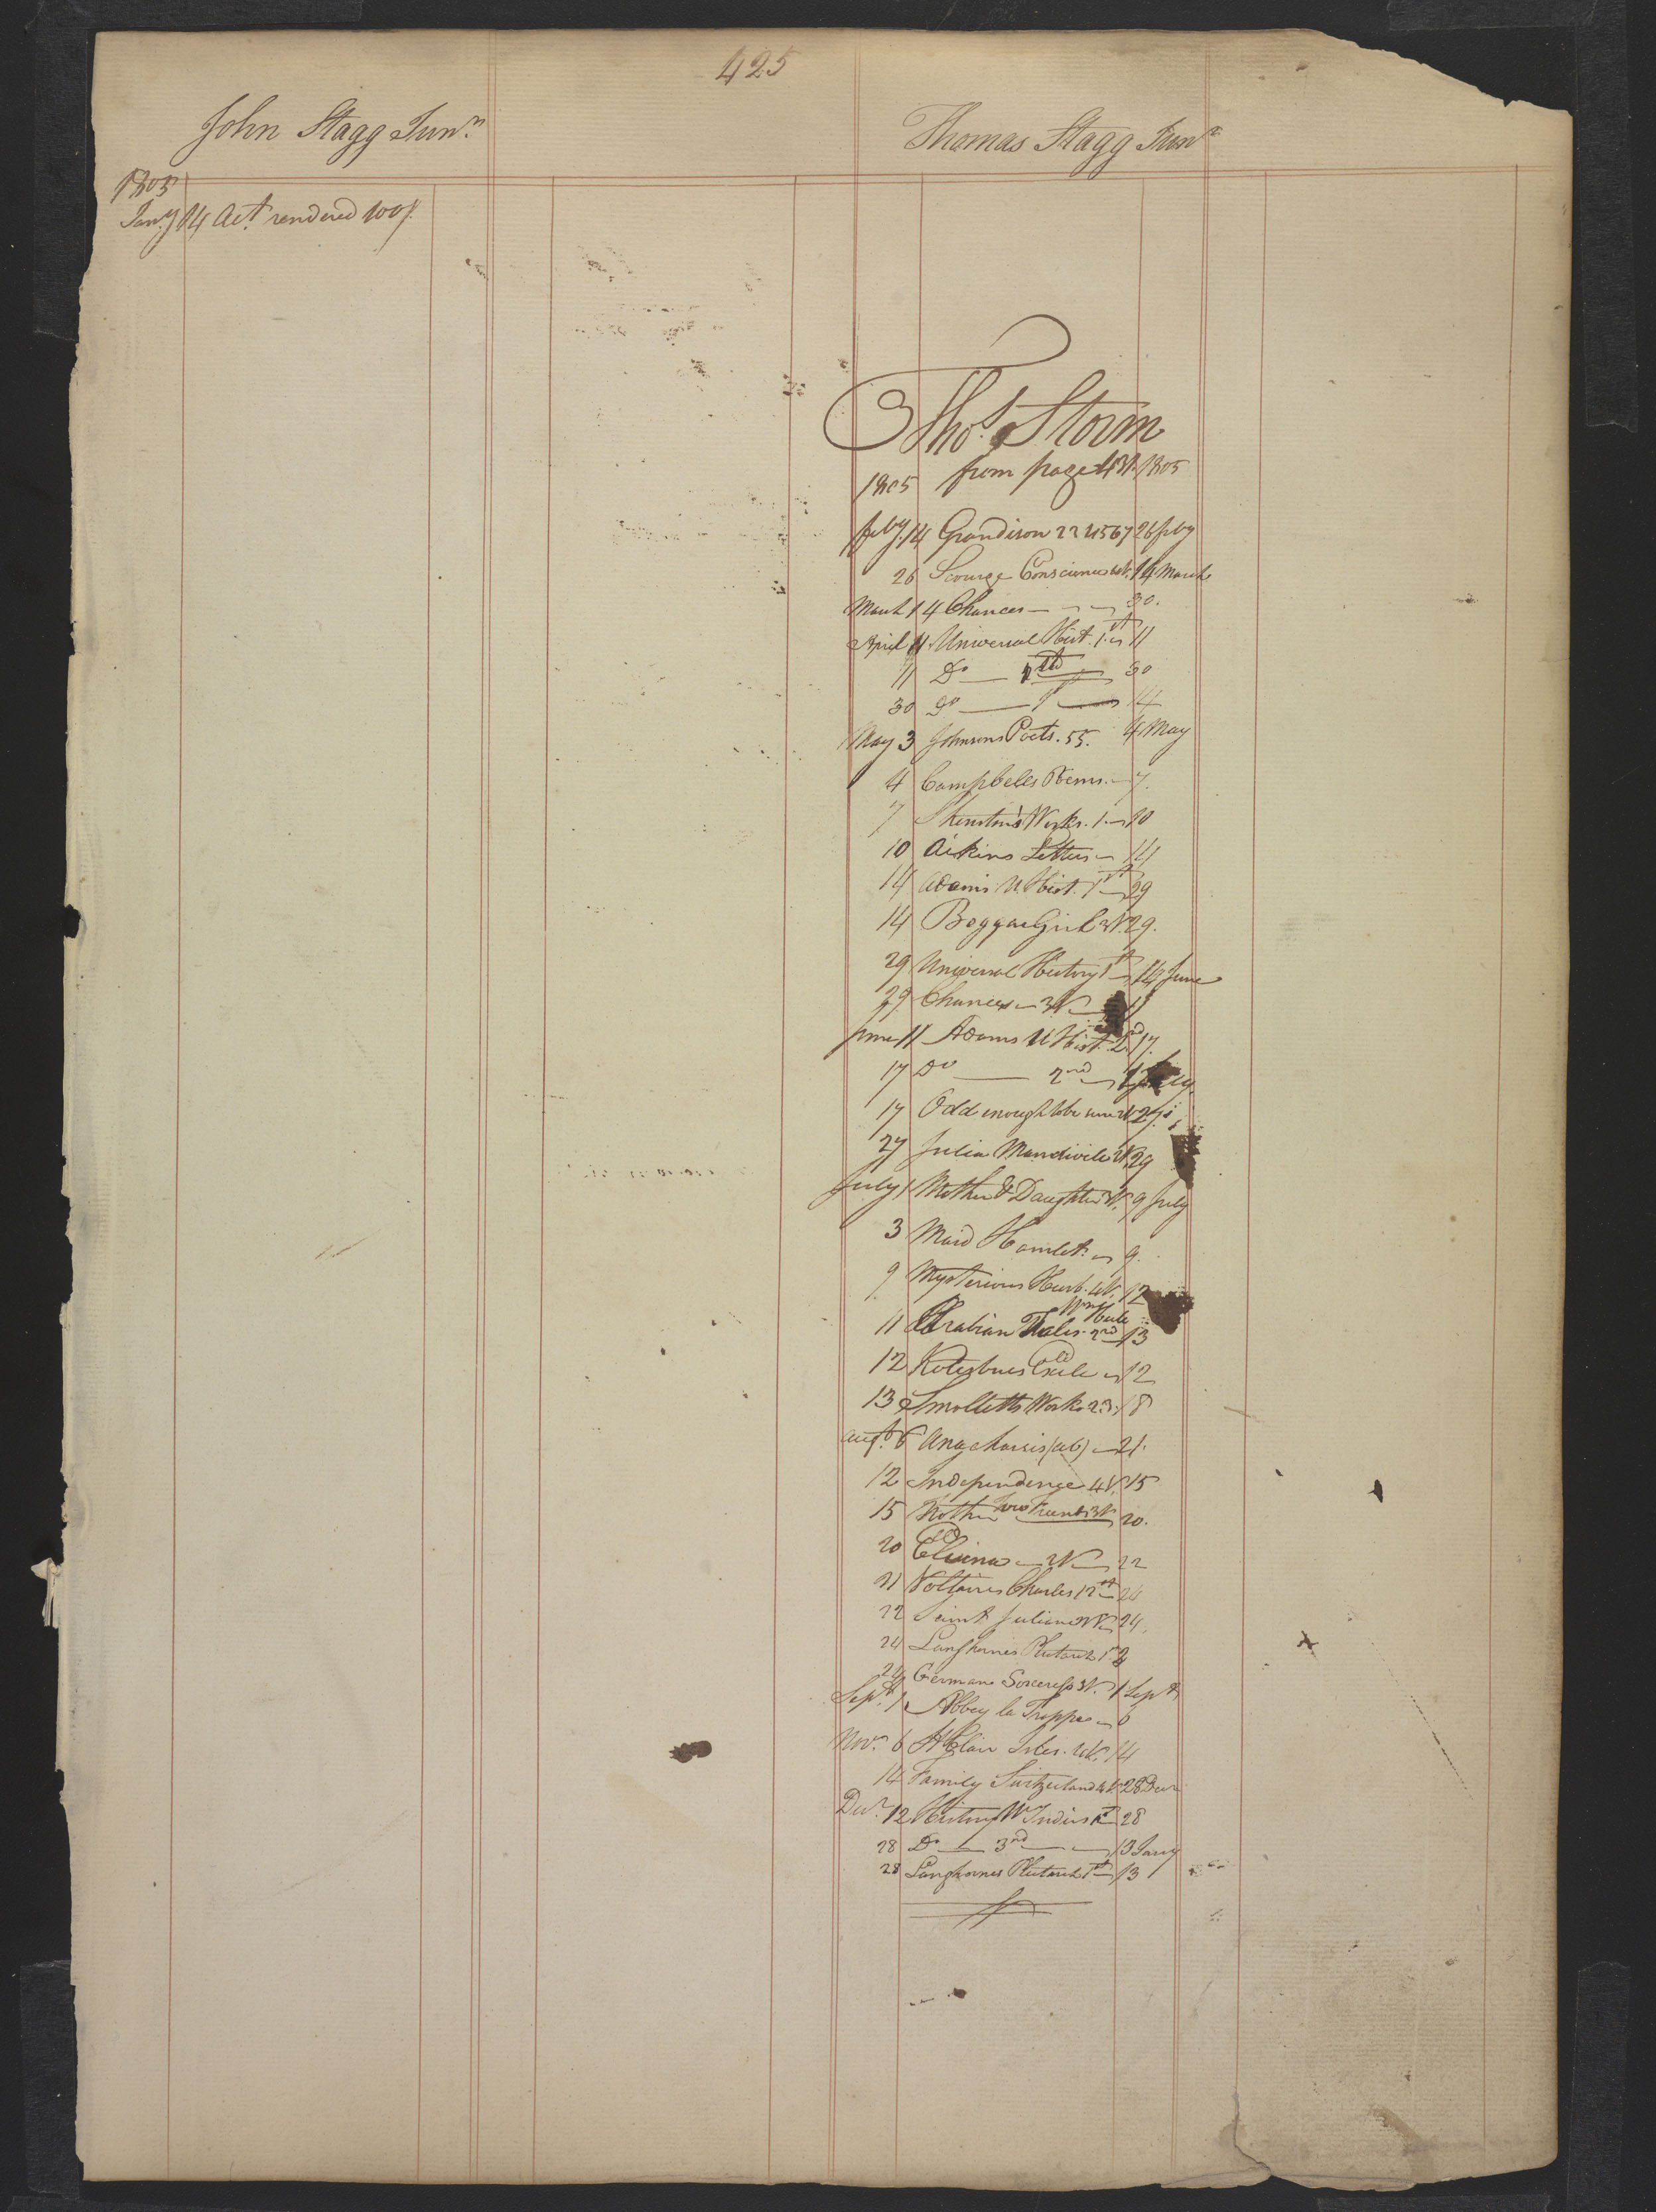 425
John Stagg Junr
1805
Jany 14 Act. rendered 100/.
Thomas Stagg Junr
Thos Storm
1805 from page 431. 1805
Feby. 14 Grandison 2 2 4 5 6 7 26 feby
26 Scourge Conscience 4V. 14 March
March 14 Chances — 30.
April 11 Universal Hist. 1.st 11
11 Do — 30
30 Do — 1st — 14
May 3 Johnsons Poets. 55. 4 May
4 Campbells Poems. — 7.
7 Shenstons Works. 1. — 10
10 Aikins Letters — 14
14 Adams U. Hist. 1st — 29
14 Beggar Girl 3V. 29.
29 Universal History 1st — 14 June
29 Chances — 3V — 11
June 11 Adams U Hist. 2nd 17.
17 Do — 2nd — July.
17 Odd enough to be sure 2V 27.
27 Julia Mandivile 2V. 29
July 1 Mother & Daughter 3V. 9 July
3 Maid Hamlet. — 9.
9 Mysterious Husb. 4V. 12
11 Arabian Tales. 2nd 13
12 Kotzbues Exile — 12
13 Smolletts Works 2.3. 18
Augt. 6 Anacharsis (ab) — 21.
12 Independence 4V. 15
15 Mother 3V 20.
20 — 2V — 22
21 Voltaires Charles 12th — 24
22 Saint Julian 2V — 24.
24 Langhornes Plutarch 1st
24 German Sorceress 3V. 1 Sept
Sept. 1 Abbey la Trappe — 6
Novr. 6 St Clair Isles. 4V. 14
14 Family Switzerland 4V. 28 Decr
Decr. 12 History W Indies 28
28 Do — 3rd — 13 Jany
28 Langhornes Plutarch 1st — 13